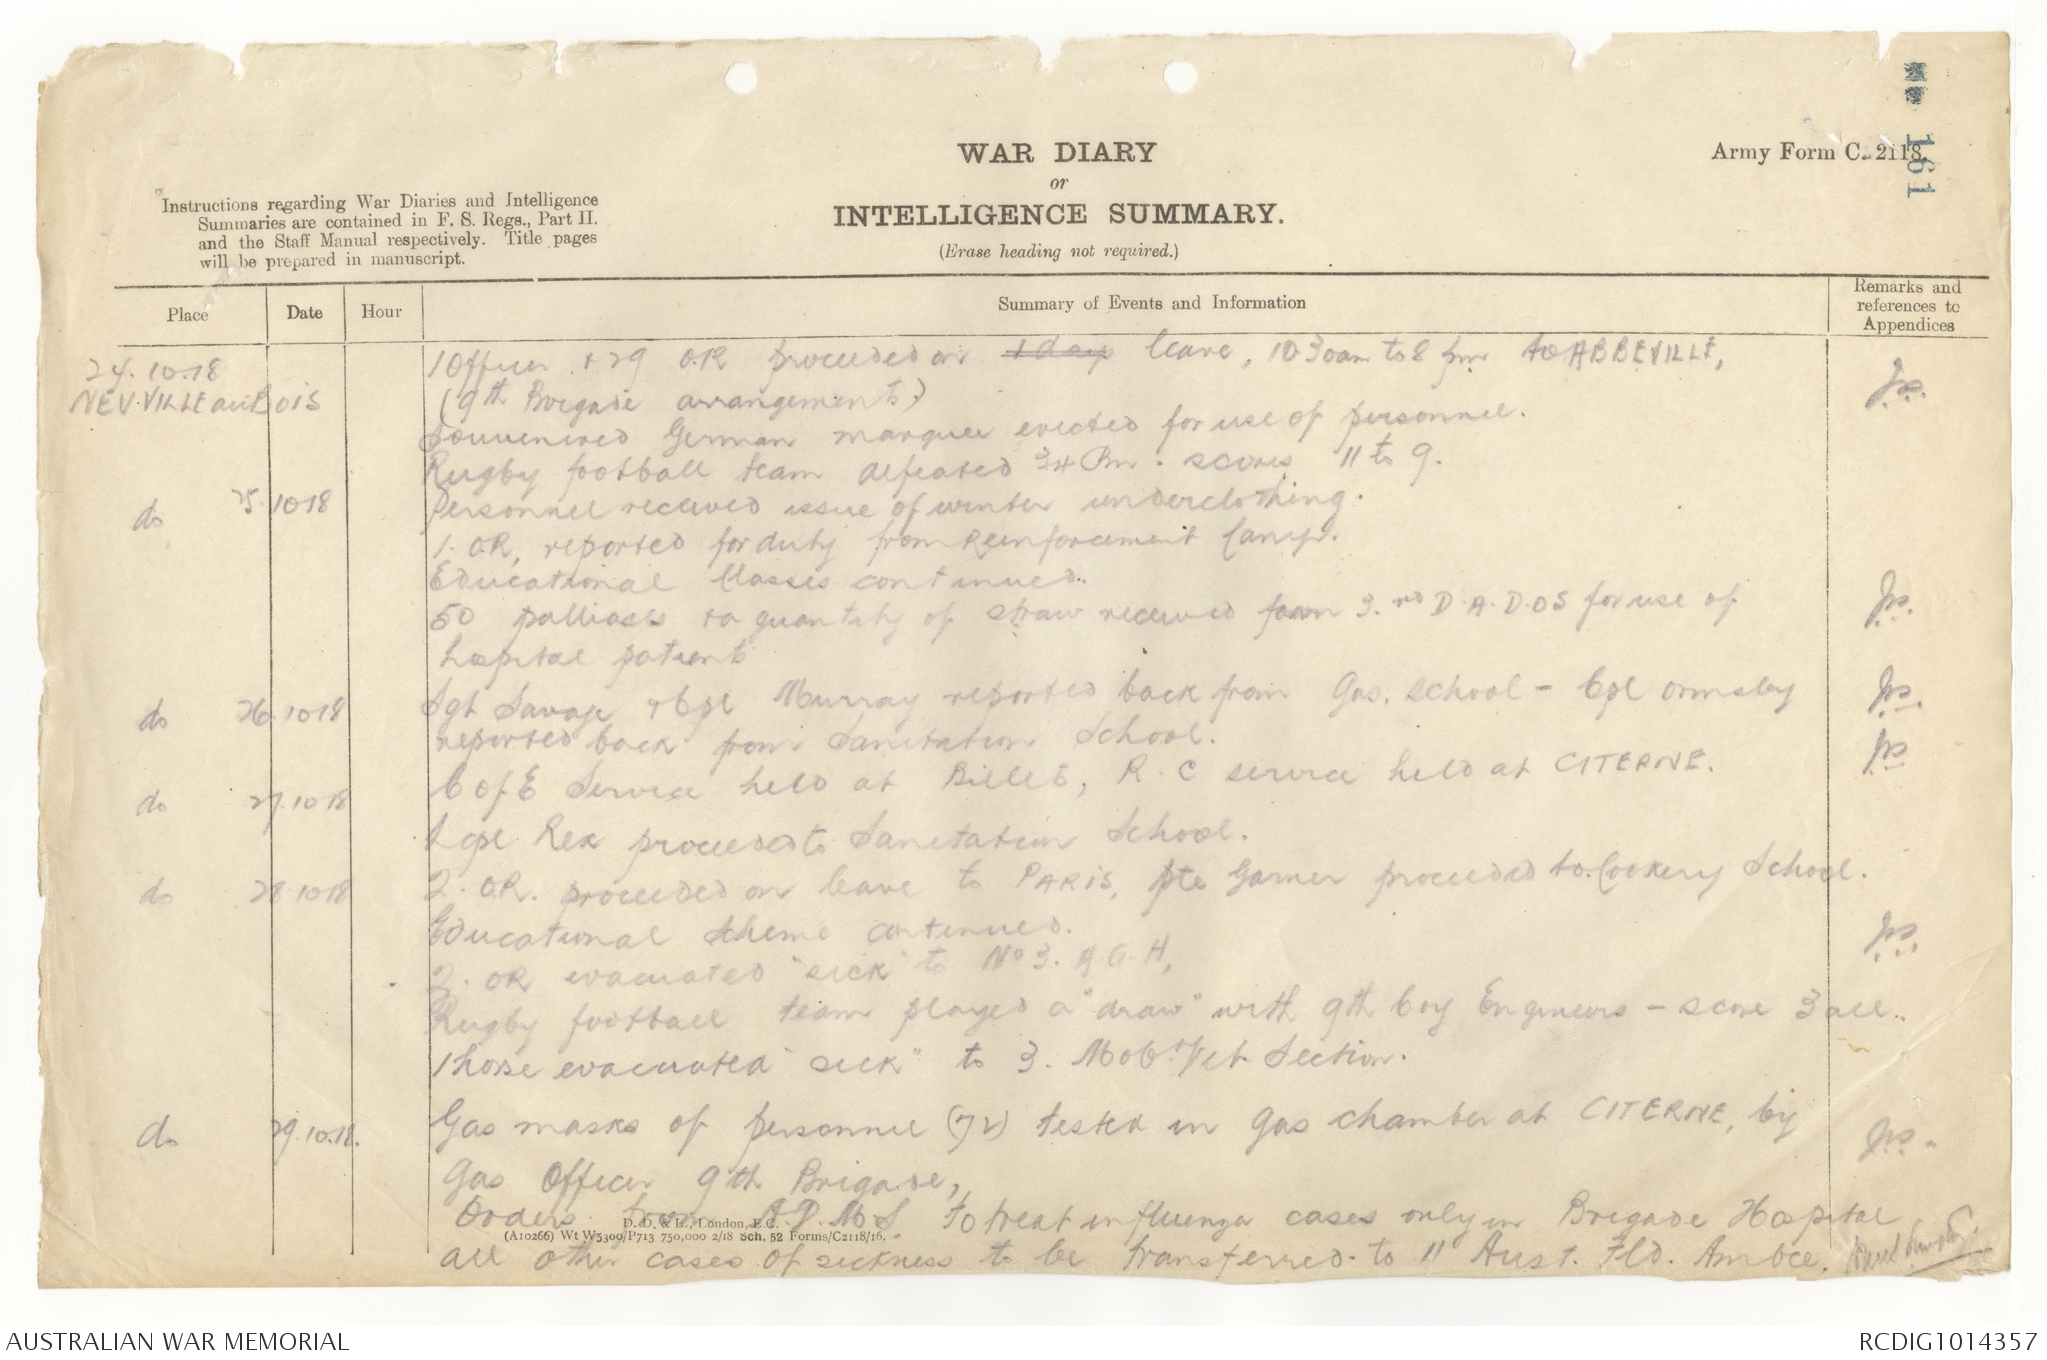 161
Army Form C. 2118.
WAR DIARY
or
INTELLIGENCE SUMMARY.
(Erase heading not required.)
Instructions regarding War Diaries and Intelligence
Summaries are contained in F. S. Regs., Part II.
and the Staff Manual respectively. Title pages
will be prepared in manuscript.
Place Date Hour Summary of Events and Information Remarks and references to Appendices
24.10.18 1 Officer + 29 O.R proceeded on 1 day leave, 10.30am to 8 pm to ABBEVILLE,
NEUVILLE au Bois (9th Brigade arrangements)
Souvenired German marquee erected for use of personnel.
Rugby football team defeated 34 Bn. scores 11 to 9.
do 25.10.18 Personnel received issue of winter underclothing.
1. OR, reported for duty from Reinforcement Camp.
Educational Classes continued.
50 palliases + a quantity of straw received from 3.rd D.A.D.OS for use of
hospital patients
do 26.10.18 Sgt Savage + Cpl Murray reported back from Gas. School - Cpl Ormsby
reported back from Sanitation School.
do 27.10.18 C of E Service held at Billets, R.C service held at CITERNE.
Lcpl Rex proceeded to Sanitation School.
do 28.10.18 2. O.R. proceeded on leave to PARIS, Pte Garner proceeded to Cookery School.
Educational Scheme continued.
2. OR evacuated "sick" to No 3. A G H,
Rugby football team played a "draw" with 9th Coy Engineers - score 3 all.
1 horse evacuated "sick" to 3. Mob. Vet Section.
do 29.10.18. Gas masks of personnel (72) tested in gas chamber at CITERNE, by
Gas Officer 9th Brigade,
Orders from A.D.M.S. to treat influenza cases only in Brigade Hospital
all other cases of sickness to be transferred to 11 Aust. Fld. Ambce.
D. D. & L., London, E.C.
(A10266) Wt W5300/P713 750,000 2/18 Sch. 52 Forms/C2118/16.
AUSTRALIAN WAR MEMORIAL
RCDIG1014357